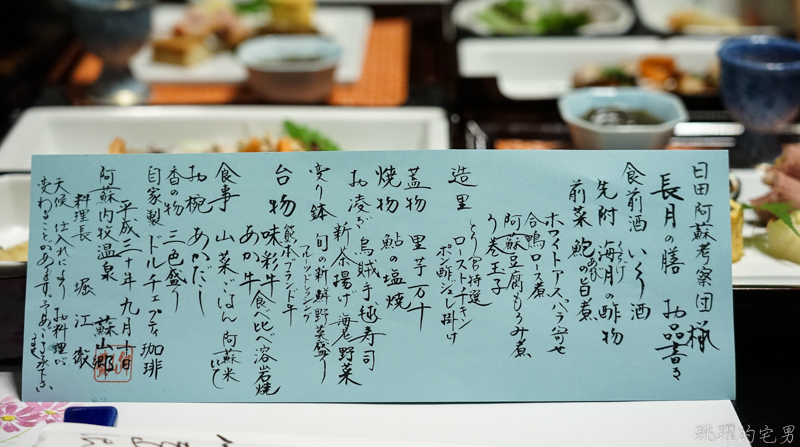 日田阿蘇考察団様
長月の膳 お品書き
食前酒 いちご酒
先附 海月の酢物
くらげ
前菜 鮑の旨煮
あわび
ホワイトアスパラ寄せ
合鴨ロース煮
阿蘇豆腐もろみ煮
う巻玉子
造里 とり宮特選
ローストチキン
ポン酢ジュレ掛け
蓋物 里芋万牛
焼物 鮎の塩焼
お凌ぎ 烏賊手毬寿司
新余揚げ 海老野菜
変り鉢 旬の新鮮野菜盛り
フルーツドレッシング
台物 味彩牛
あか牛 食べ比べ溶岩焼
熊本ブランド牛
食事 山菜ごはん 阿蘇米
お椀 あかだし
香の物 三色盛り
自家製 ドルチェプティ 珈琲
平成三十年 九月十日
阿蘇内牧温泉 蘇山郷
料理長 堀江
天候、仕入れにより、お料理が
変わることがあります。
跳躍的宅男